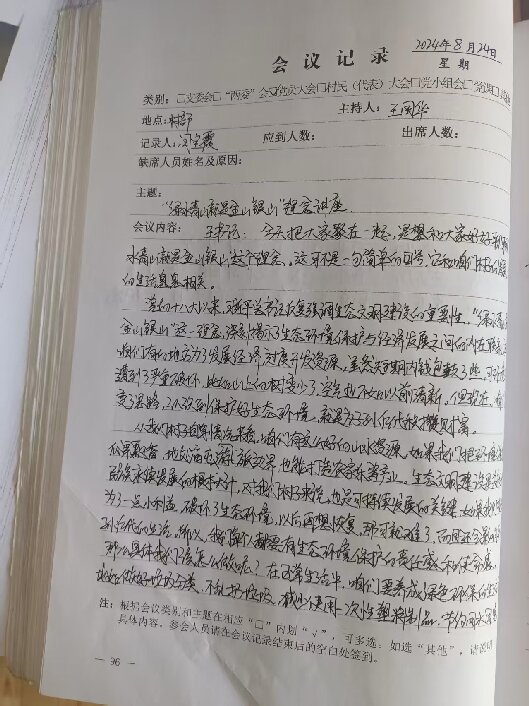 2024年8月24日
会议记录
星期
类别：□支委会□“两委”会□党员大会□村民（代表）大会□党小组会□党课□
地点：村部
主持人：王国华
记录人：
应到人数：
出席人数：
缺席人员姓名及原因：
主题：
“绿水青山就是金山银山”理念讲座
会议内容：王书记：今天把大家聚在一起，是想和大家好好
水青山就是金山银山这个理念。这可不是一句简单的口号，它和咱们村的
的生活息息相关。
党的十八大以来，习近平总书记反复强调生态文明建设的重要性。“绿水青
金山银山”这一理念，深刻揭示了生态环境保护与经济发展之间的内在联系
咱们有的地方为了发展经济，过度开发资源，虽然短期内钱包鼓了些，可环境
遭到了严重破坏，比如山上的树变少了，空气也不如以前清新。但现在，
变思路，认识到保护好生态环境，就是为子孙后代积攒财富。
从我们村子自身情况来看，咱们有这么好的山水资源。如果我们把环境
瓜果飘香，地就能吸引游客，也能打造农家乐等产业。生态文明建设是关
民族永续发展的根本大计，对我们村子来说，也是可持续发展的关键。如果我们
为了一点小利益，破坏了生态环境，以后再想恢复，那可就难了，而且还会影响
到后代的生活。所以，我们每个人都要有生态环境保护的责任感和使命感。
那么具体我们该怎么做呢？在日常生活中，咱们要养成绿色环保的生活
做好垃圾分类，不乱扔垃圾，减少使用一次性塑料制品，节约用水用
注：根据会议类别和主题在相应“□”内划“√”，可多选；如选“其他”，请说明
具体内容。参会人员请在会议记录结束后的空白处签到。
— 96 —